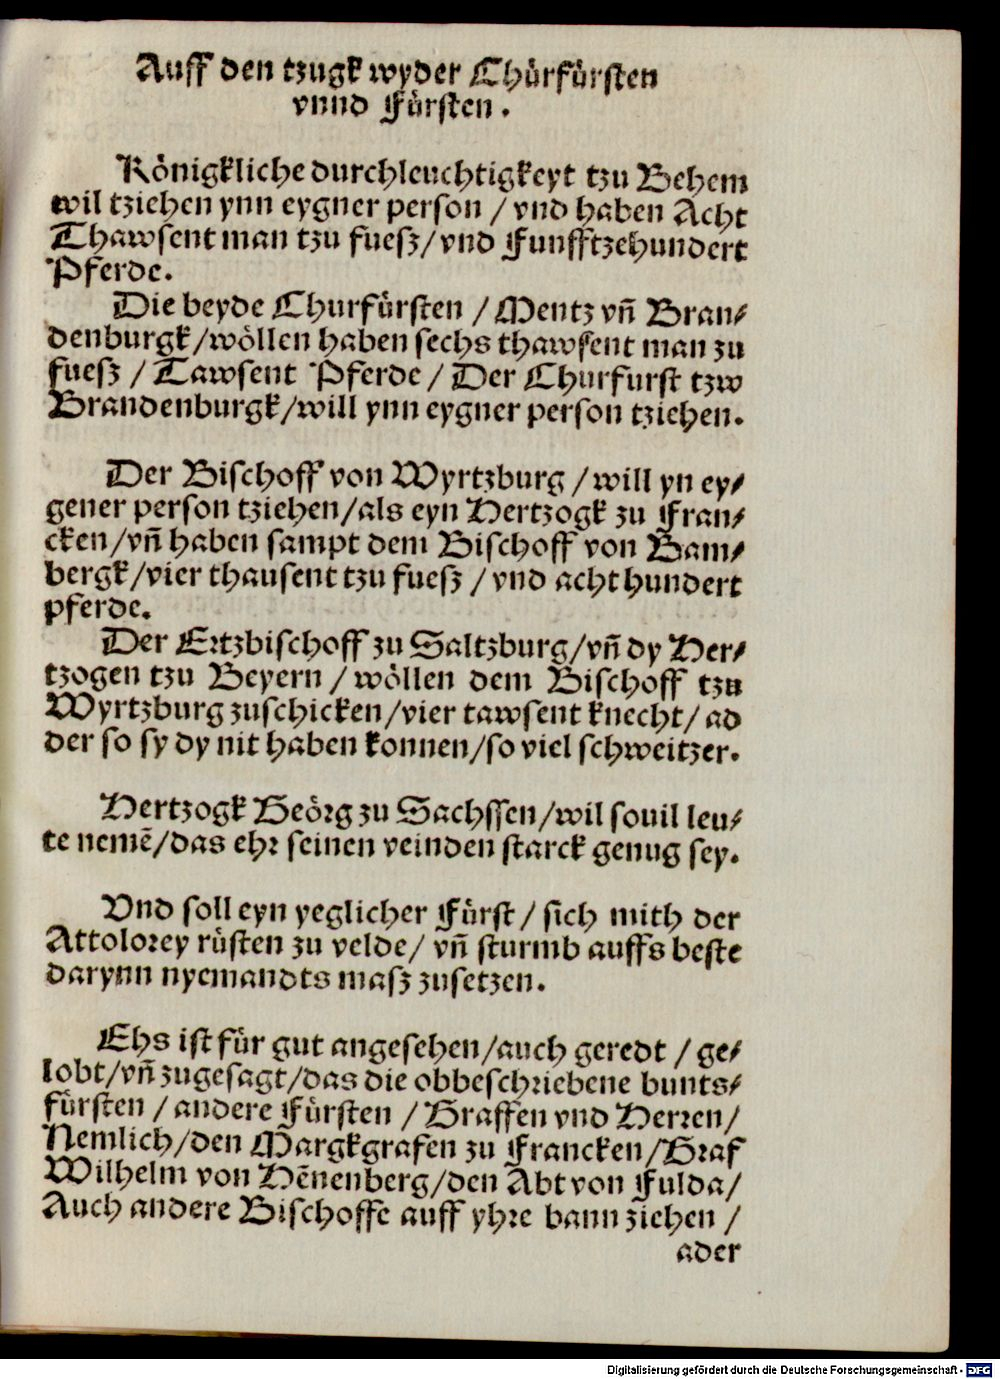 Auff den tzugk wyder Chůrfůrsten
vnnd Fůrsten.
Kőnigkliche durchleuchtigkeyt tzu Behem
wil tziehen ynn eygner person / vnd haben Acht
Thawsent man tzu fuesz/ vnd Funfftzehundert
Pferde.
Die beyde Churfůrsten / Mentz vñ Bran⸗
denburgk/wőllen haben sechs thawsent man zu
fuesz / Tawsent Pferde / Der Churfurst tzw
Brandenburgk/will ynn eygner person tziehen.
Der Bischoff von Wyrtzburg / will yn ey⸗
gener person tziehen/als eyn Hertzogk zu Fran⸗
cken/vñ haben sampt dem Bischoff von Bam⸗
bergk/vier thausent tzu fuesz / vnd acht hundert
pferde.
Der Ertzbischoff zu Saltzburg/vñ dy Her⸗
tzogen tzu Beyern / wőllen dem Bischoff tzu
Wyrtzburg zuschicken/vier tawsent knecht/ ad
der so sy dy nit haben konnen/so viel schweitzer.
Hertzogk Geőrg zu Sachssen/wil souil leu⸗
te nemẽ/das ehr seinen veinden starck genug sey.
Vnd soll eyn yeglicher Fůrst / sich mith der
Attolorey růsten zu velde/ vñ sturmb auffs beste
darynn nyemandts masz zusetzen.
Ehs ist fůr gut angesehen/auch geredt / ge⸗
lobt/vñ zugesagt/das die obbeschriebene bunts⸗
fůrsten / andere Fůrsten / Graffen vnd Herren/
Nemlich/den Margkgrafen zu Francken/Graf
Wilhelm von Hẽnenberg/den Abt von Fulda/
Auch andere Bischoffe auff yhre bann ziehen /
ader
Digitalisierung gefördert durch die Deutsche Forschungsgemeinschaft - DFG